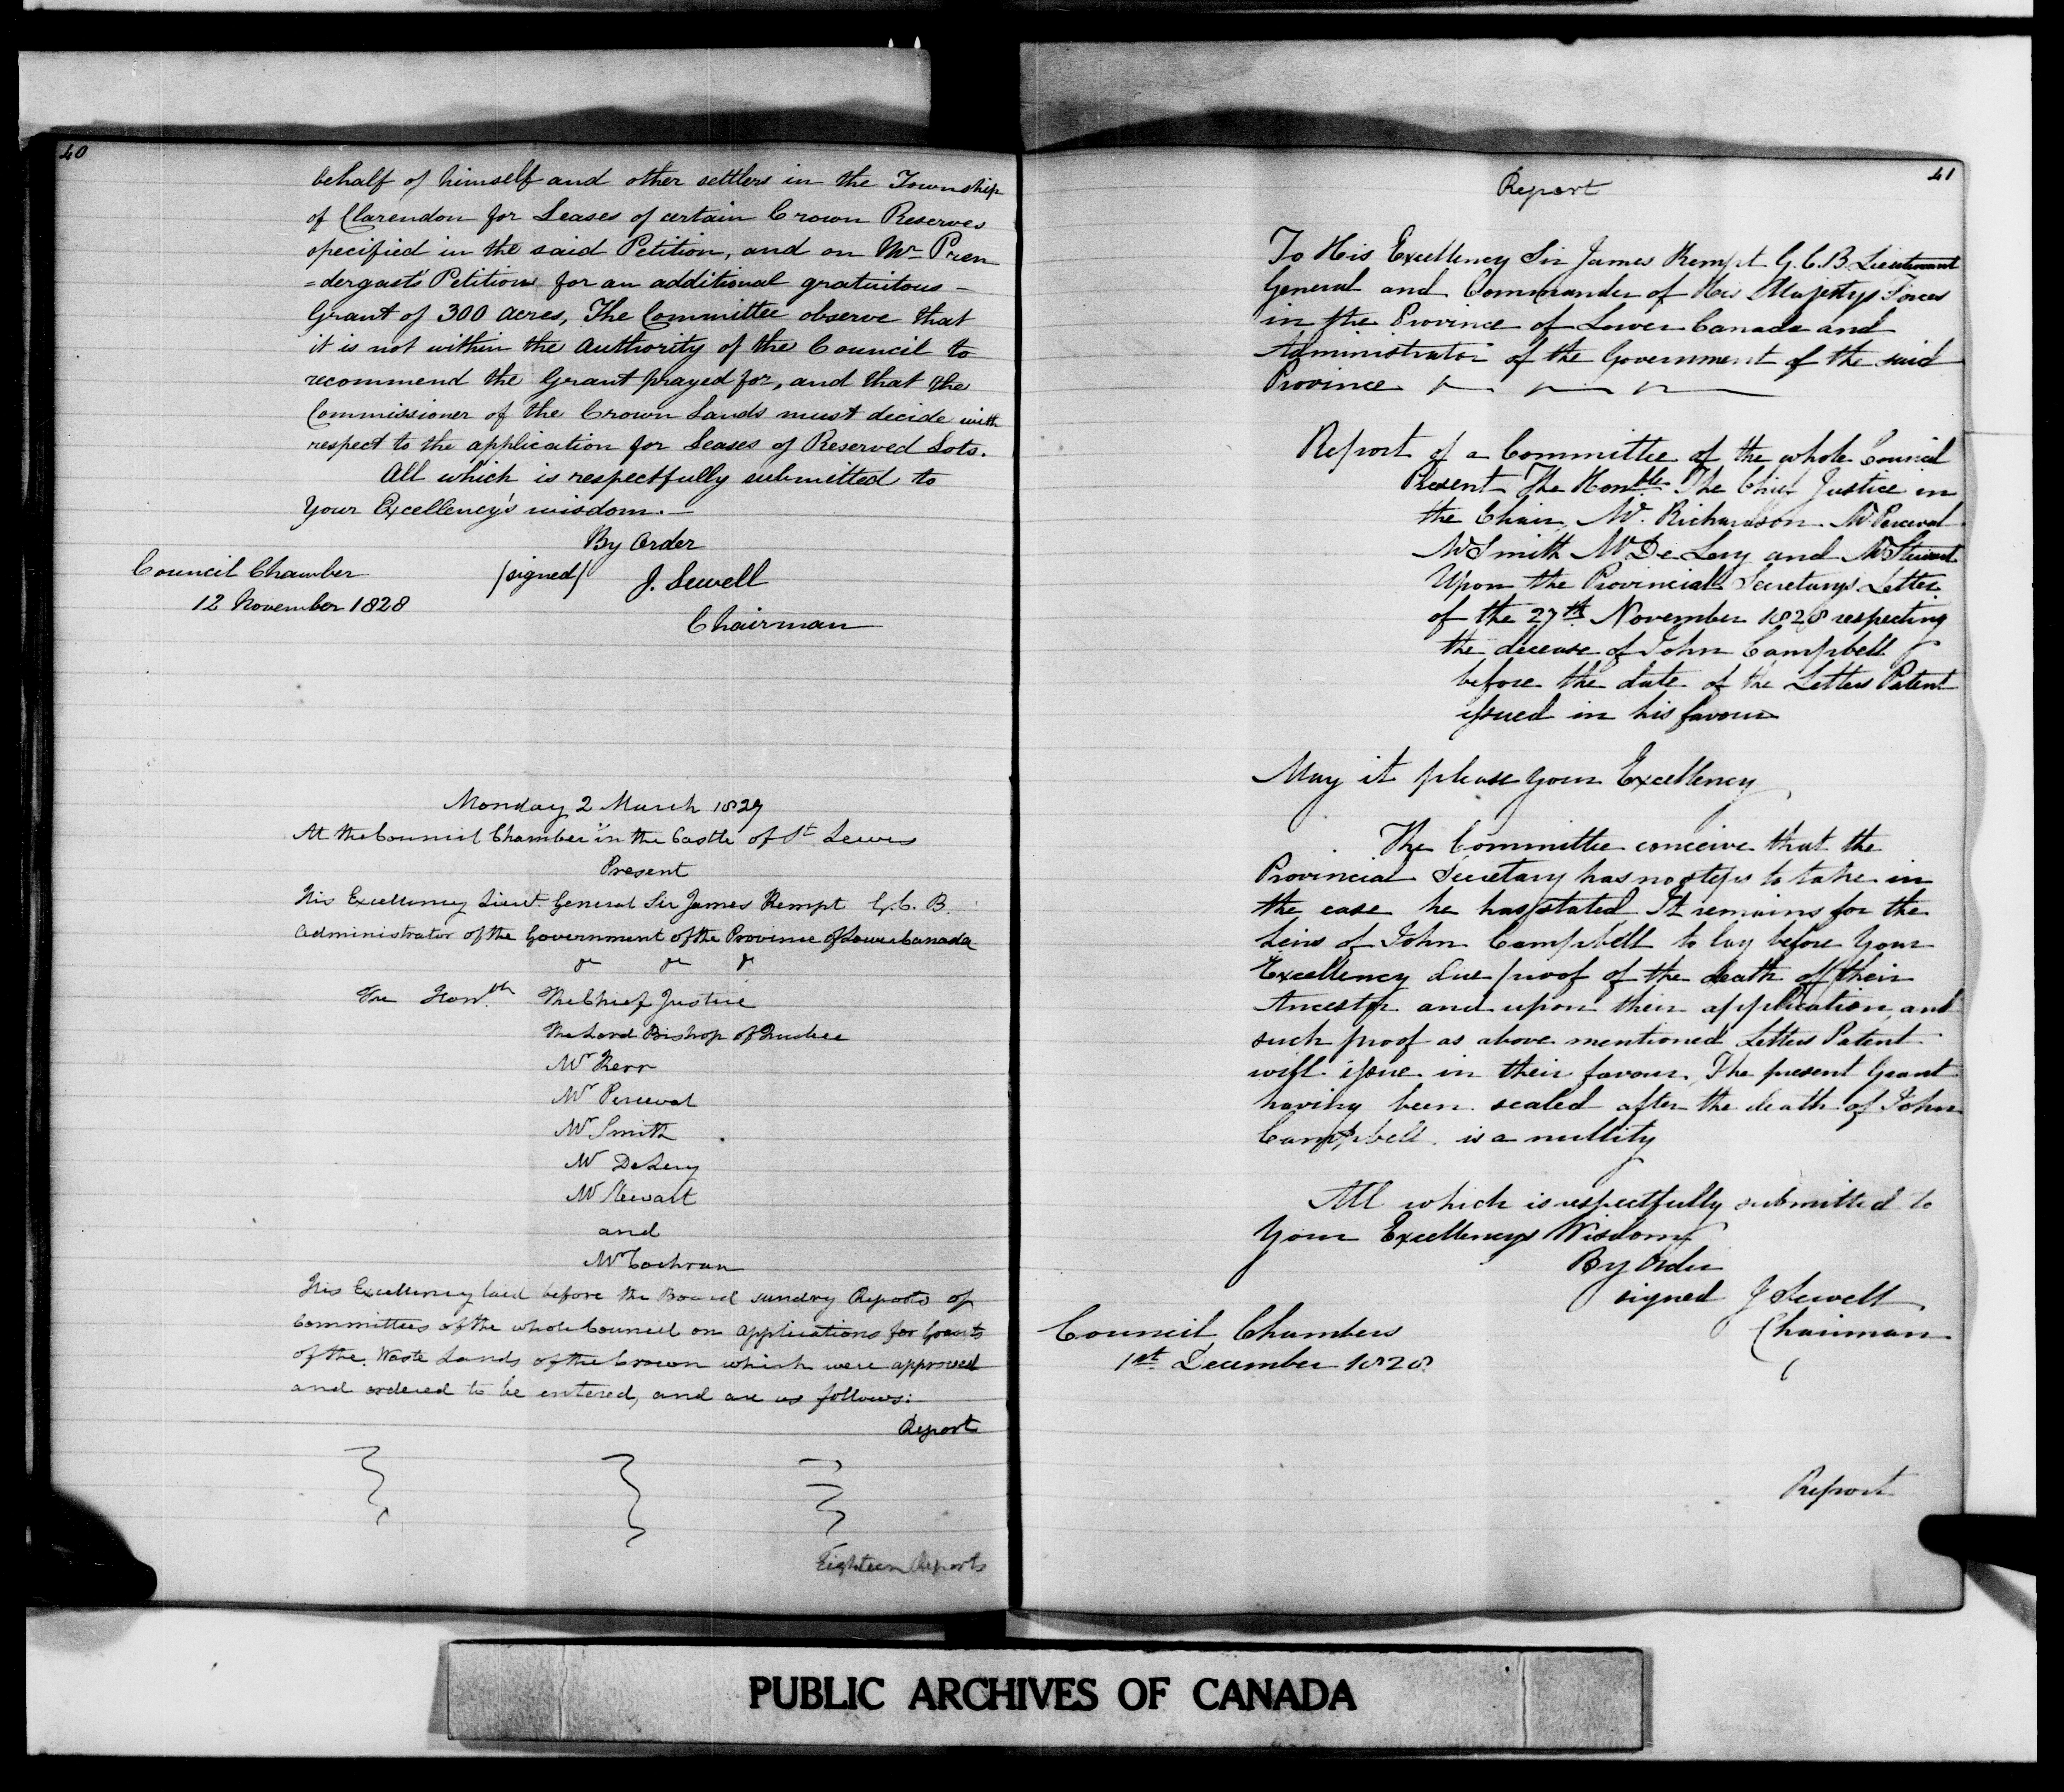 40
behalf of himself and other settlers in the Township
of Clarendon for Leases of certain Crown Reserves
specified in the said Petition, and on Mr Pren
=dergast's Petition for an additional gratuitous –
Grant of 300 acres, The Committee observe that
it is not within the Authority of the Council to
recommend the Grant prayed for, and that the
Commissioner of the Crown Lands must decide with
respect to the application for Leases of Reserved Lots.
All which is respectfully submitted to
Your Excellency's wisdom.–
By Order
Council Chamber /signed/ J. Sewell
12 November 1828
Chairman
Monday 2 March 1829
At the Council Chamber in the Castle of St Lewis
Present
His Excellency Lieut. General Sir James Kempt G. C. B.
Administrator of the Government of the Province of Lower Canada
&c &c &c
The Honble The Chief Justice
The Lord Bishop of Quebec
Mr Kerr
Mr Perceval
Mr Smith
Mr DeLery
Mr Stewart
and
Mr Cochran
His Excellency laid before the Board sundry Reports of
Committees of the whole Council on applications for Grants
of the Waste Lands of the Crown which were approved
and ordered to be entered, and are as follows:
Report
Eighteen Reports
41
Report
To His Excellency Sir James Kempt G.C.B. Lieutenant
General and Commander of His Majestys Forces
in the Province of Lower Canada and
Administrator of the Government of the said
Province
Report of a Committee of the whole Council
Present The Honble The Chief Justice in
the Chair, Mr. Richardson Mr Perceval
Mr Smith Mr De Lery and Mr Stewart
Upon the Provincial Secretarys Letter
of the 27th November 1828 respecting
the decease of John Campbell
before the date of the Letters Patent
issued in his favour
May it please your Excellency
The Committee conceive that the
Provincial Secretary has no steps to take in
the case he has stated It remains for the
heirs of John Campbell to lay before Your
Excellency due proof of the death of their
Ancestor and upon their application and
such proof as above mentioned Letters Patent
will issue in their favour, The present Grant
having been sealed after the death of John
Campbell is a nullity
All which is respectfully submitted to
Your Excellencys Wisdom
By Order
signed J Sewell
Chairman
Council Chambers
1st December 1828
Report
PUBLIC ARCHIVES OF CANADA